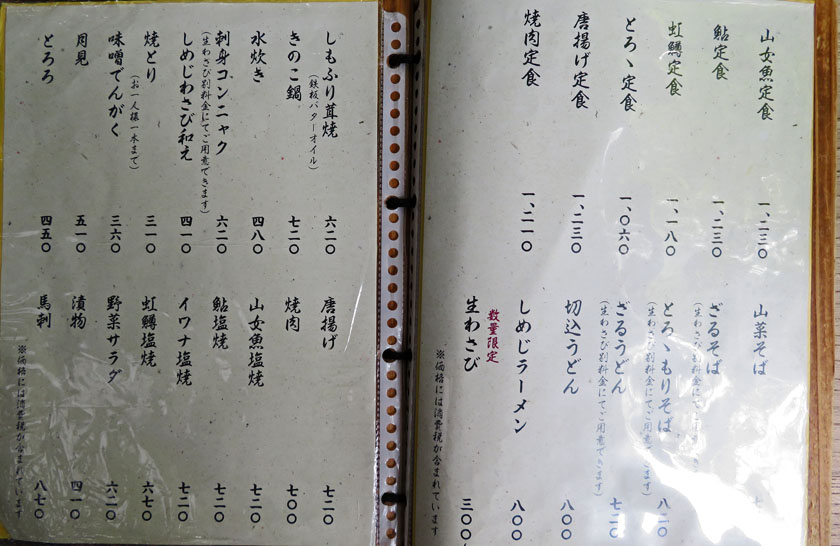 山女魚定食 一、二三〇
鮎定食 一、二三〇
虹鱒定食 一、一八〇
とろゝ定食 一、〇六〇
唐揚げ定食 一、二三〇
焼肉定食 一、二一〇
山菜そば
ざるそば
(生わさび別料金にてご用意できます)
とろゝもりそば 八二〇
(生わさび別料金にてご用意できます)
ざるうどん 七二〇
(生わさび別料金にてご用意できます)
切込うどん 八〇〇
しめじラーメン 八〇〇
数量限定
生わさび 三〇〇
※価格には消費税が含まれています
しもふり茸焼 六二〇
(鉄板バターオイル)
きのこ鍋 七二〇
水炊き 四八〇
刺身コンニャク 六二〇
(生わさび別料金にてご用意できます)
しめじわさび和え 四一〇
焼とり 三一〇
(お一人様一本まで)
味噌でんがく 三六〇
月見 五一〇
とろろ 四五〇
唐揚げ 七二〇
焼肉 七〇〇
山女魚塩焼 七二〇
鮎塩焼 七二〇
イワナ塩焼 七二〇
虹鱒塩焼 六七〇
野菜サラダ 六二〇
漬物 四一〇
馬刺 八七〇
※価格には消費税が含まれています